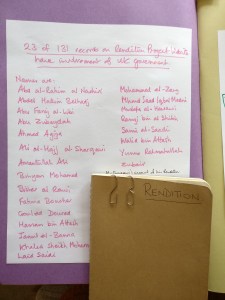 23 of 131 records on Rendition Project Website
have involvement of UK government
Names are:
Abd al-Rahim al Nashiri
Abdel Hakim Belhadj
Abu Faraj al-Libi
Abu Zubaydah
Ahmed Agiza
Ali al-Hajj al-Sharqawi
Amanatullah Ali
Binyam Mohamed
Bisher al Rawi
Fatima Bouchar
Gouled Dourad
Hassan bin Attash
Jamil el-Banna
Khalid Sheikh Mohammed
Laid Saidi
Muhammad al-Zery
Muhammad Saad Iqbal Madni
Mustafa al-Hawsawi
Ramzi bin al-Shibh
Sami al-Saadi
Walid bin Attash
Yunus Rahmatullah
Zubair
RENDITION